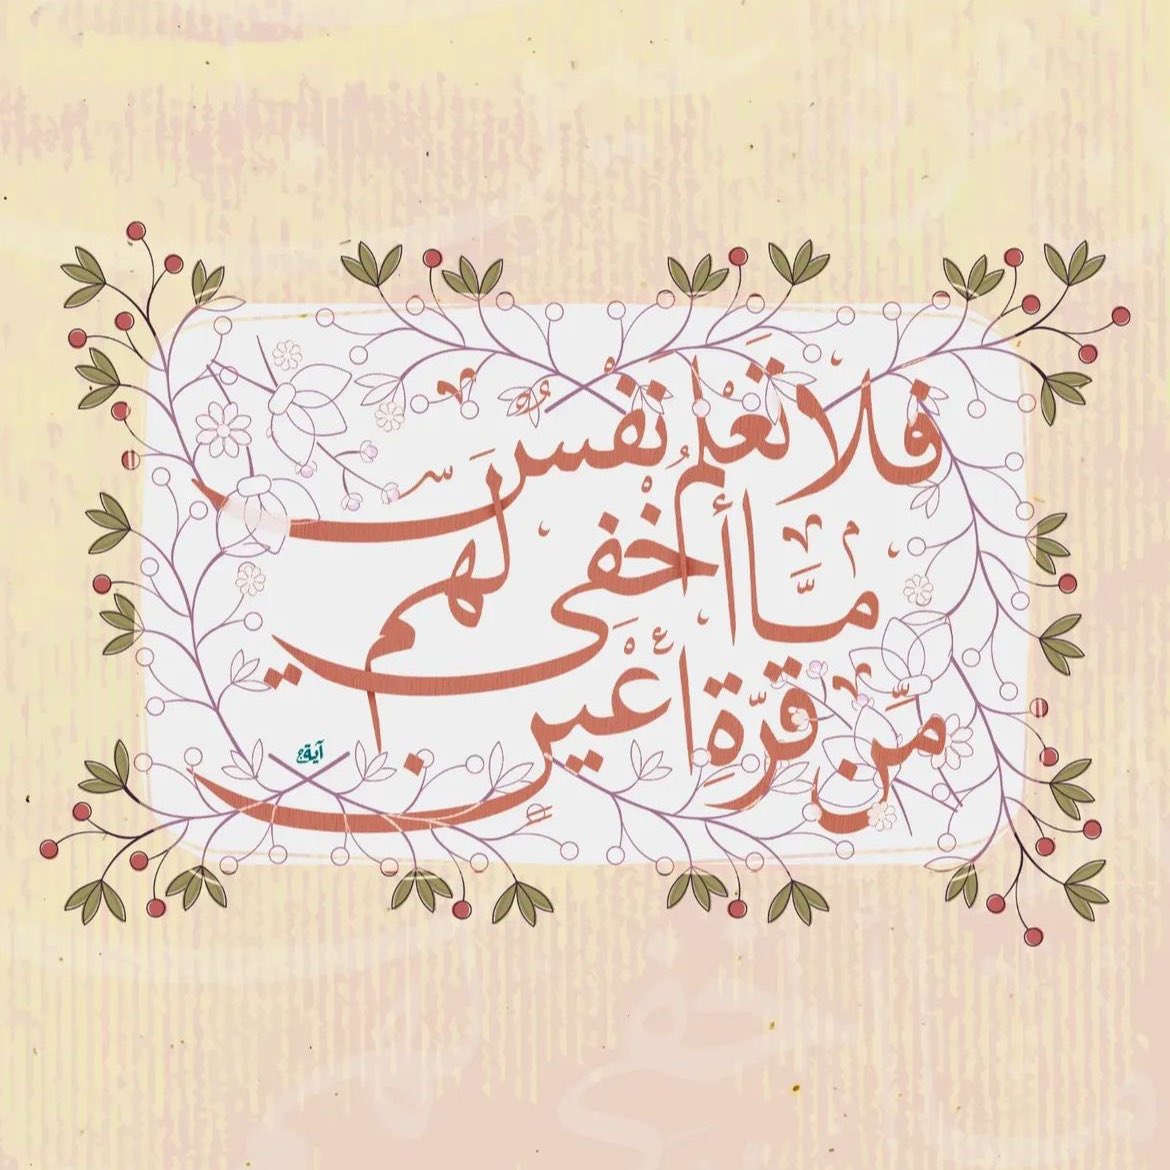 فَلَا تَعْلَمُ نَفْسٌ
مَّا أُخْفِيَ لَهُم
مِّن قُرَّةِ أَعْيُنٍ
آية